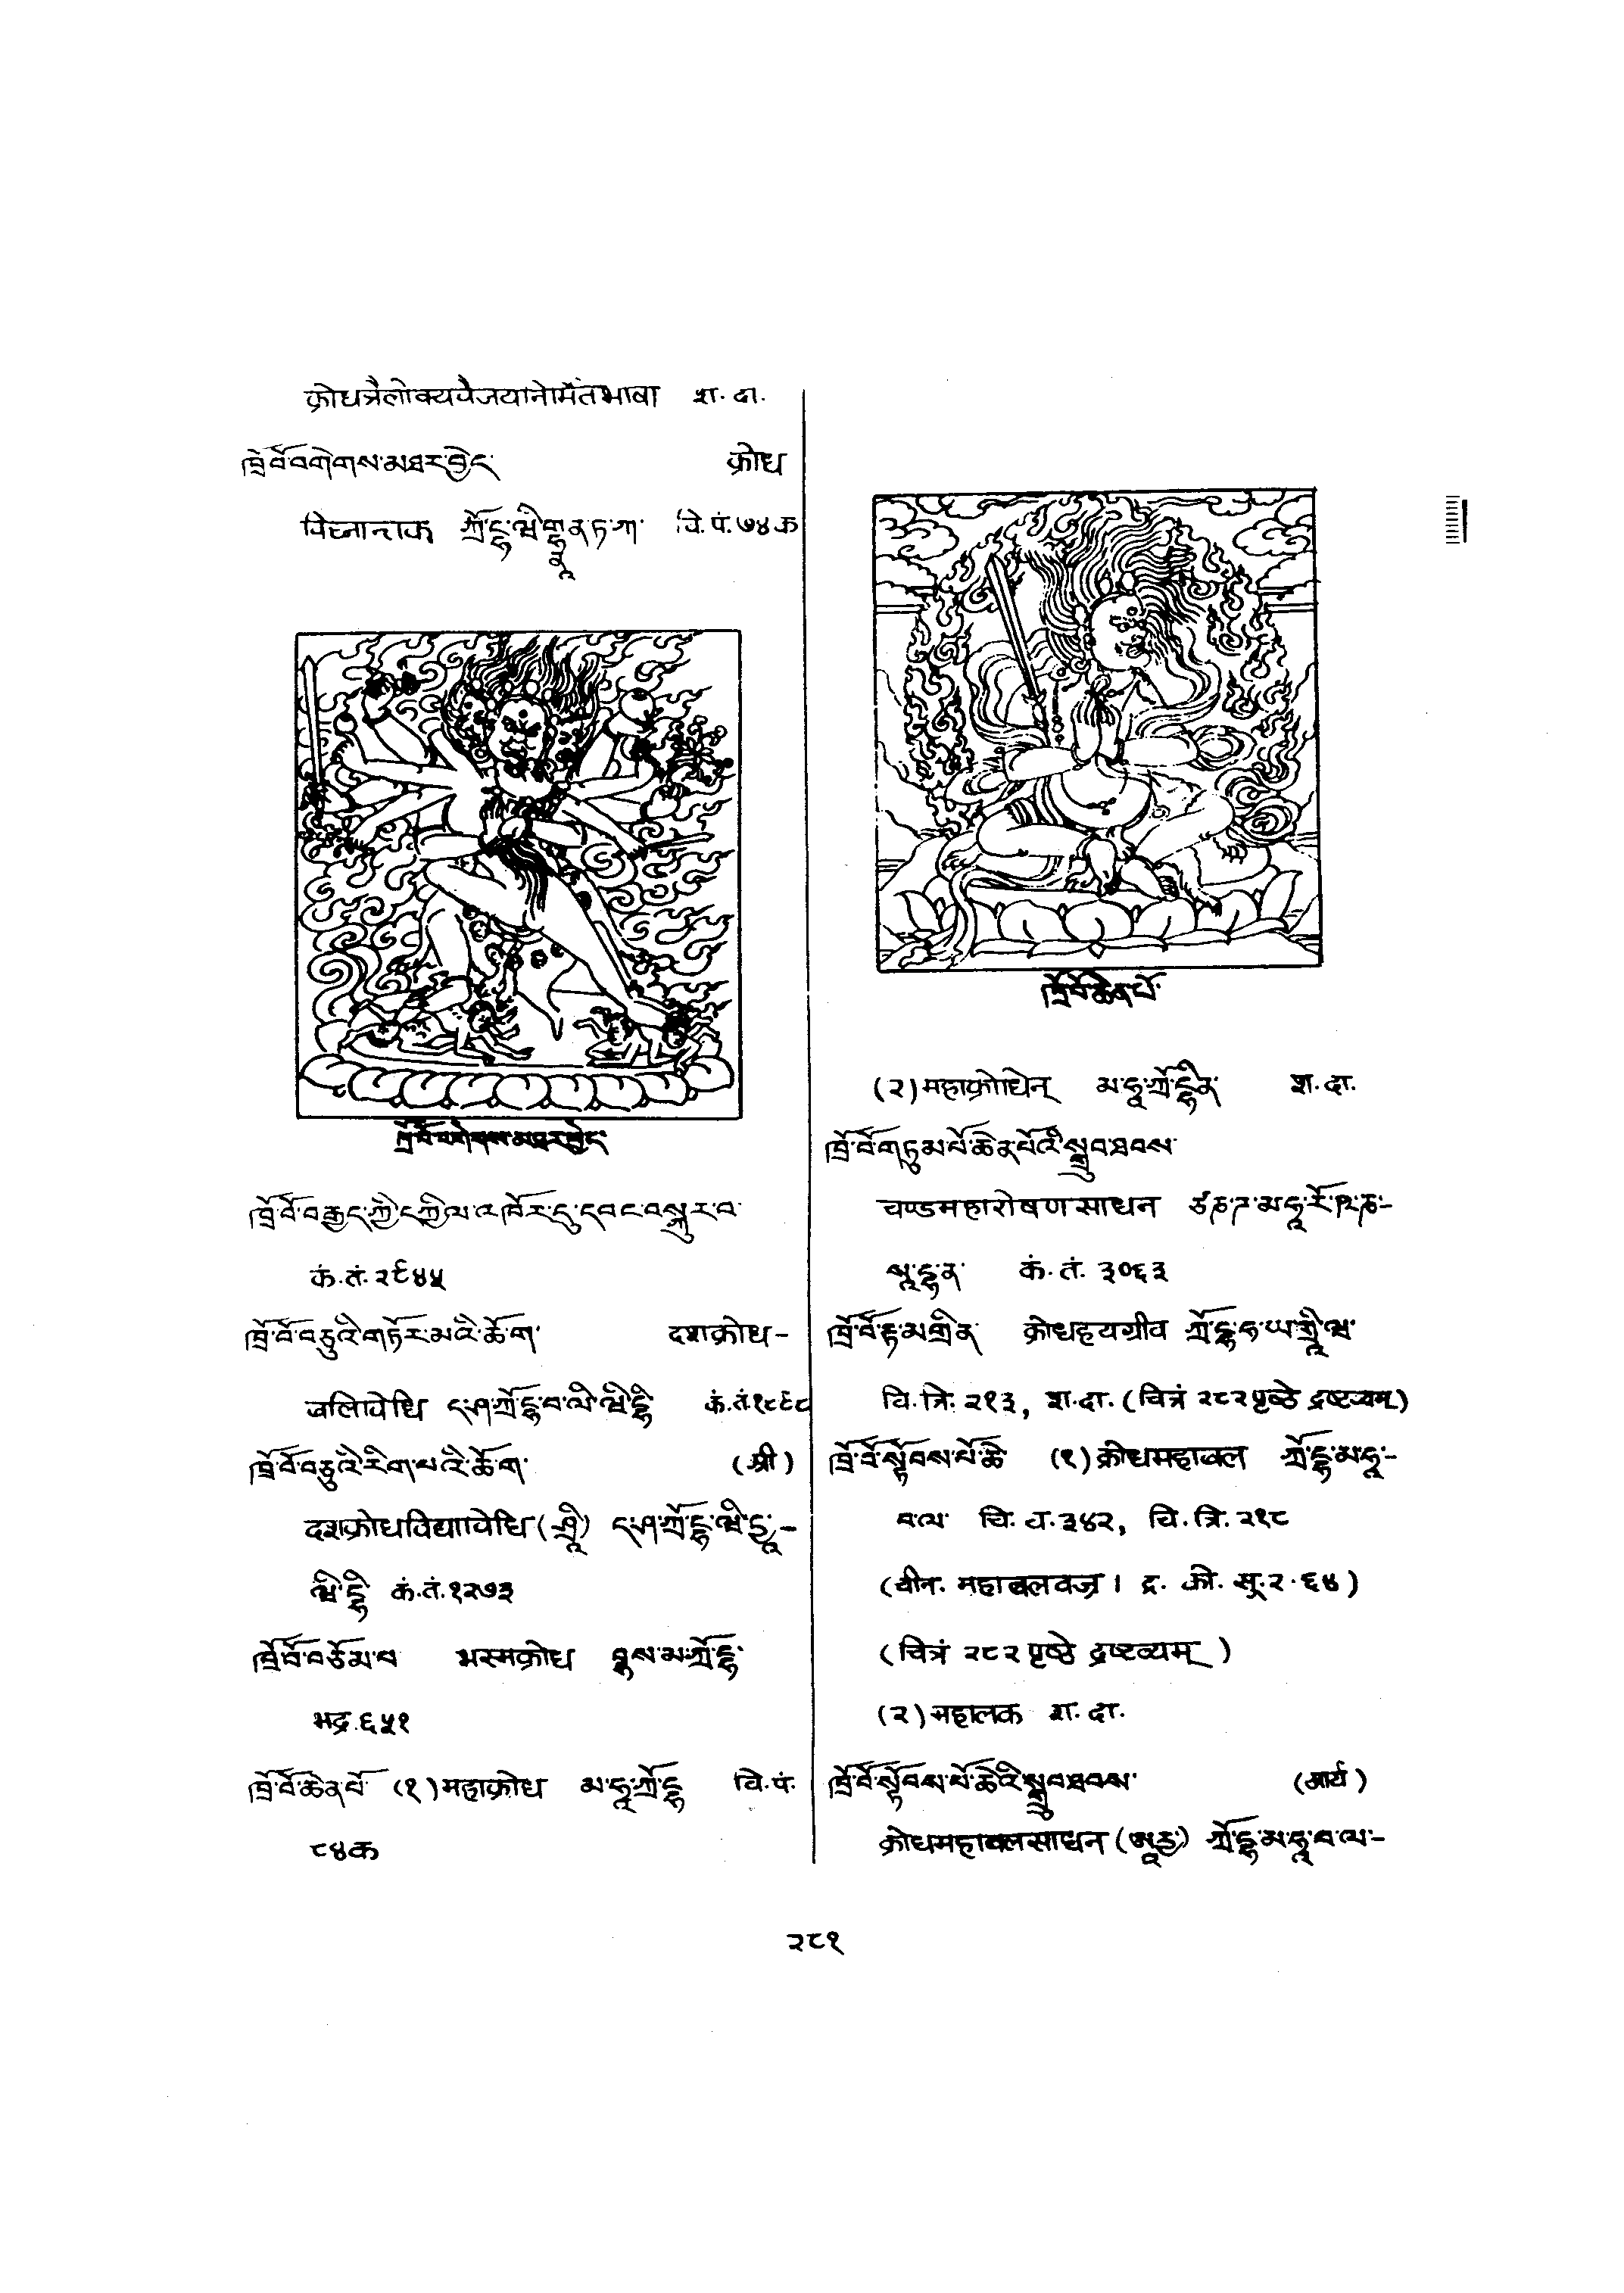 क्रोधत्रैलोक्यविजयनिर्मितभाषा श.दा.
ཁྲོ་བོ་བགེགས་མཐར་བྱེད་ क्रोध
विघ्नान्तक ཀྲོ་དྷ་ཝི་གྷྣཱནྟ་ཀ་ वि.पं.७४क
ཁྲོ་བོ་བགེགས་མཐར་བྱེད་
ཁྲོ་བོ་བརྒྱད་ཀྱི་དཀྱིལ་འཁོར་དུ་དབང་བསྐུར་བ་
कं.तं.२९४५
ཁྲོ་བོ་བཅུའི་གཏོར་མའི་ཆོ་ག་ दशक्रोध-
बलिविधि ད་ཤ་ཀྲོ་དྷ་བ་ལི་ཝི་དྷི་ कं.तं.१८९८
ཁྲོ་བོ་བཅུའི་རིག་པའི་ཆོ་ག་ (श्री)
दशक्रोधविद्याविधि (ཤྲཱི) ད་ཤ་ཀྲོ་དྷ་ཝི་དྱཱ-
ཝི་དྷི་ कं.तं.१२७३
ཁྲོ་བོ་བཅོམ་པ भस्मक्रोध བྷས་མ་ཀྲོ་དྷ་
भद्र.६५१
ཁྲོ་བོ་ཆེན་པོ (१) महाक्रोध མ་ཧཱ་ཀྲོ་དྷ वि.पं.
८४क
ཁྲོ་བོ་ཆེན་པོ་
(२) महाक्रोधिन् མ་ཧཱ་ཀྲོ་དྷིན་ श.दा.
ཁྲོ་བོ་གཏུམ་པོ་ཆེན་པོའི་སྒྲུབ་ཐབས་
चण्डमहारोषण साधन ཙཎྜ་མ་ཧཱ་རོ་ཥ་ཎ-
སཱ་དྷ་ན་ कं.तं. ३०६३
ཁྲོ་བོ་རྟ་མགྲིན་ क्रोधहयग्रीव ཀྲོ་དྷ་ཧ་ཡ་གྲཱི་ཝ་
चि.त्रि.२१३, श.दा. (चित्रं २८२ पृष्ठे द्रष्टव्यम्)
ཁྲོ་བོ་སྟོབས་པོ་ཆེ (१) क्रोधमहाबल ཀྲོ་དྷ་མ་ཧཱ་-
བ་ལ་ चि.व.३४२, चि.त्रि.२१८
(चीन. महाबलवज्र। द्र. को. सू.२.६४)
(चित्रं २८२ पृष्ठे द्रष्टव्यम्)
(२) महालक श.दा.
ཁྲོ་བོ་སྟོབས་པོ་ཆེའི་སྒྲུབ་ཐབས་ (आर्य)
क्रोधमहाबलसाधन (ཨཱརྱ) ཀྲོ་དྷ་མ་ཧཱ་བ་ལ་-
२८१